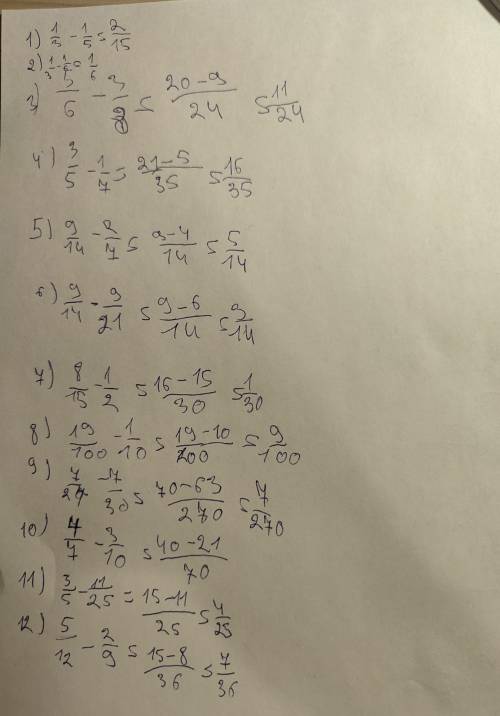 1) 1/3 - 1/5 = 2/15
2) 1/3 - 1/6 = 1/6
3) 5/6 - 3/8 = (20-9)/24 = 11/24
4) 3/5 - 1/7 = (21-5)/35 = 16/35
5) 9/14 - 2/7 = (9-4)/14 = 5/14
6) 9/14 - 9/21 = (9-6)/14 = 3/14
7) 8/15 - 1/2 = (16-15)/30 = 1/30
8) 19/100 - 1/10 = (19-10)/100 = 9/100
9) 7/27 - 7/30 = (70-63)/270 = 7/270
10) 4/7 - 3/10 = (40-21)/70
11) 3/5 - 11/25 = (15-11)/25 = 4/25
12) 5/12 - 2/9 = (15-8)/36 = 7/36